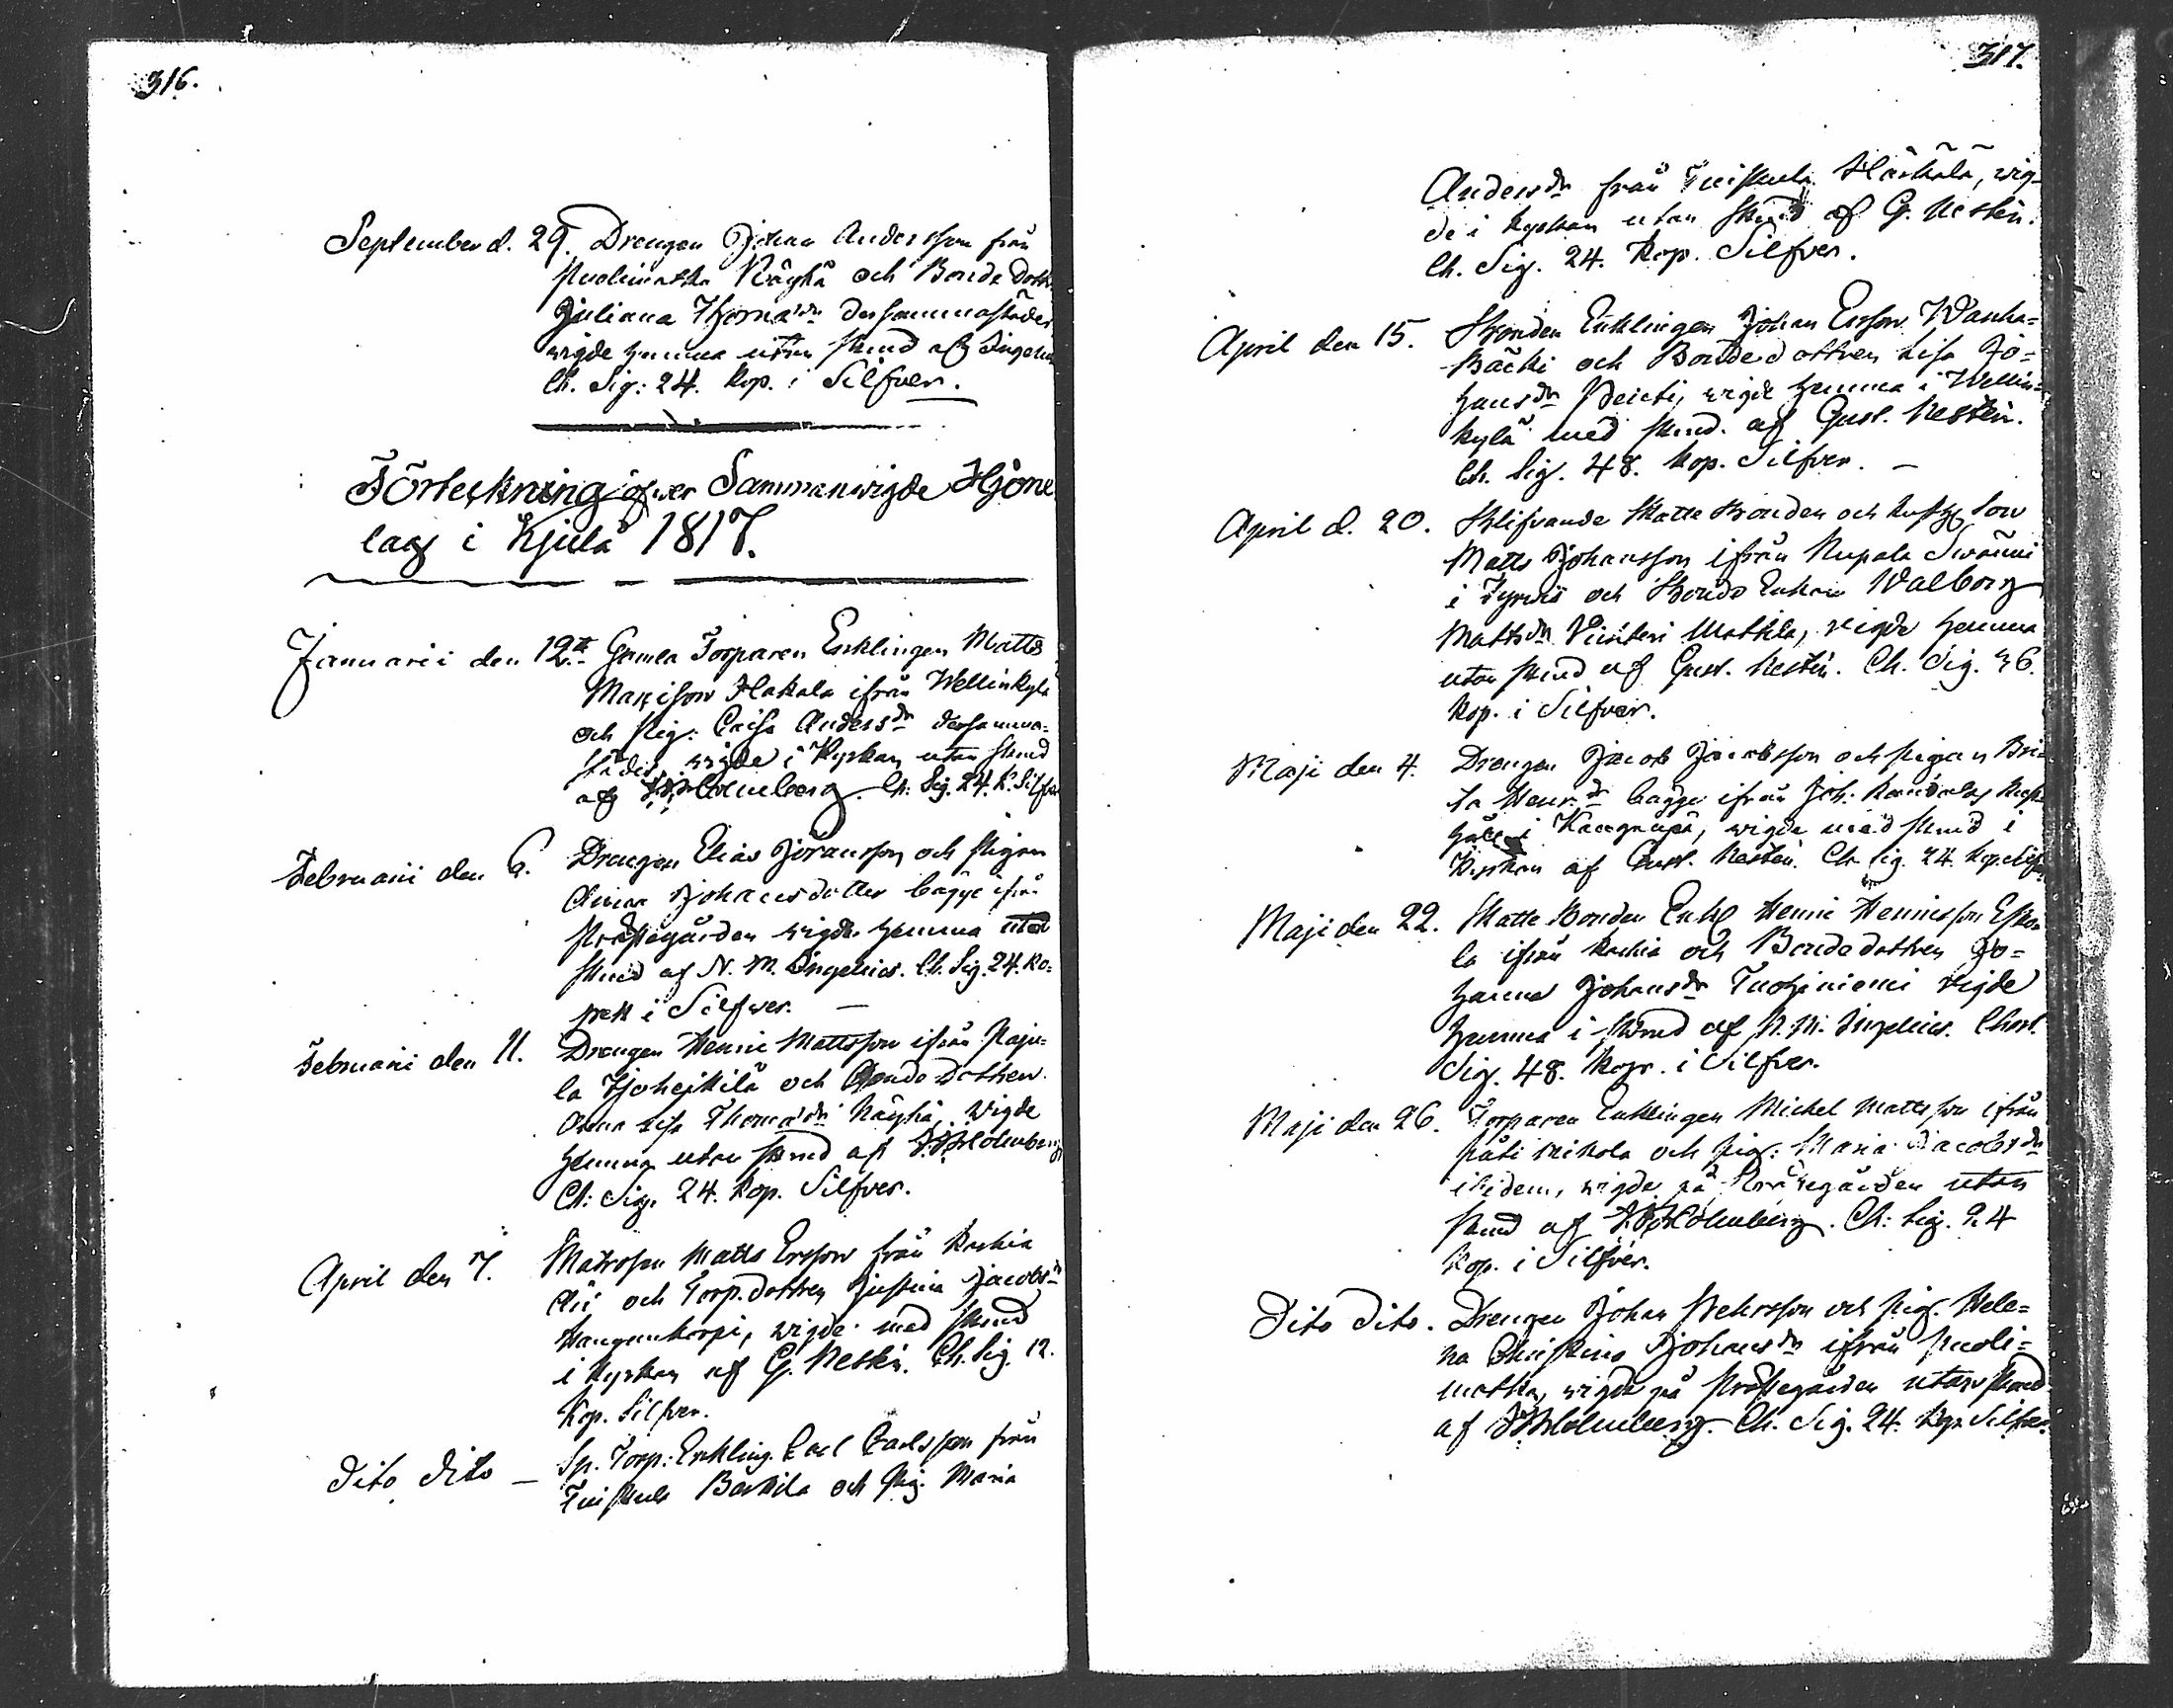 316.
September d. 29. Drengen Johan Andersson från
Puolimatka Näyhä och Bonde Dott.
Juliana Thomæ dr dersammastädes
wigde hemma utan skrud af Ingelius
Ch. Sig: 24. Kop. i Silfver.
Förteckning öfwer Sammanwigde Hjone
lag i Kjula 1817.
Januarii den 12te Gamla Torparen Enklingen Matts
Hakala ifrån Wellinkylä
och Pig: Caisa Anders dr dersamma-
städes, wigde i Kyrkan utan skrud
af Holmberg. Ch: Sig. 24. K. Silfver
Februarii den 6. Drengen Elias Jöransson och Pigan
Anna Johansdotter bägge ifrån
Prästegården wigde hemma utan
skrud af N. M. Ingelius. Ch. Sig. 24. Ko=
pek i Silfwer. —
Februarii den 11. Drengen Henric Mattsson ifrån Paju=
la och Bonde Dottren
Anna Lisa Thomæ dr Näyhä, Wigde
hemma utan skrud af Holmberg
Ch: Sig. 24. Kop. Silfver.
April den 7. Matrosen Matts Ersson från
och Torp. dottren Justina Jacobs dr
wigde med skrud
i Kyrkan af G. Nestén. Ch. Sig. 12.
Kop. Silfver.
Dito Dito — Sp. Torp: Enkling. Carl Carlsson från
Tuiskula Barkila och Pig. Maria
317.
Anders dr från Tuiskula Härkälä, wig=
de i Kyrkan utan skrud af G. Nestén.
Ch. Sig. 24. Kop. Silfver.
April den 15. Bonden Enklingen Johan Ersson Wanha=
Bäcki och Bondedottren Lisa Jo=
hans dr wigde hemma i Wellin=
kylä med skrud. af Gust. Nestén.
Ch. Sig. 48. Kop. Silfver. —
April d. 20. Blifvande Skatte Bonden och Rusth. Son
Matts Johansson ifrån
i Tyrwis och Bonde Enkan Walborg
Matts dr Mattila, wigde hemma
utan skrud af Gust. Nestén. Ch. Sig. 36.
Kop. i Silfver.
Maji den 4. Drengen Jacob Jacobsson och pigan Bri=
ta Henr. dr bägge ifrån Joh.
i wigde med skrud i
Kyrkan af Gust. Nestén. Ch. Sig. 24. Kop. Silfver
Maji den 22. Skatte Bonden Enkl Henric Henricsson Esko=
la ifrån och Bondedottren Jo=
hanna Johans dr Tuohiniemi wigde
hemma i skrud af N. M. Ingelius. Chart.
Sig. 48. Kop. i Silfver.
Maji den 26. Torparen Enklingen Michel Mattsson ifrån
och Pig: Maria Jacobs dr
ibidem, wigde på Prästegården utan
skrud af Holmberg. Ch: Sig. 24
Kop. i Silfver.
Dito Dito. Drengen Johan Pehrsson och Pig. Hele=
na Christina Johans dr ifrån Puoli=
matka, wigde på Prästegården utan skrud
af Holmberg. Ch. Sig. 24. Kop. Silfver.